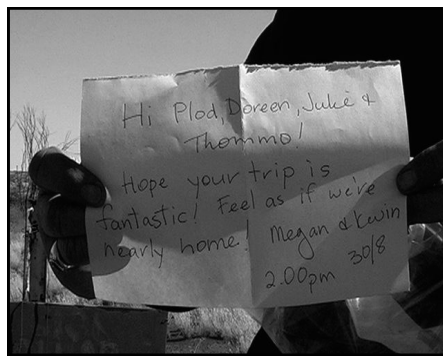 Hi Plod, Doreen, Julie &
Thommo!
Hope your trip is
fantastic! Feel as if we're
nearly home! Megan & Kevin
2.00pm 30/8